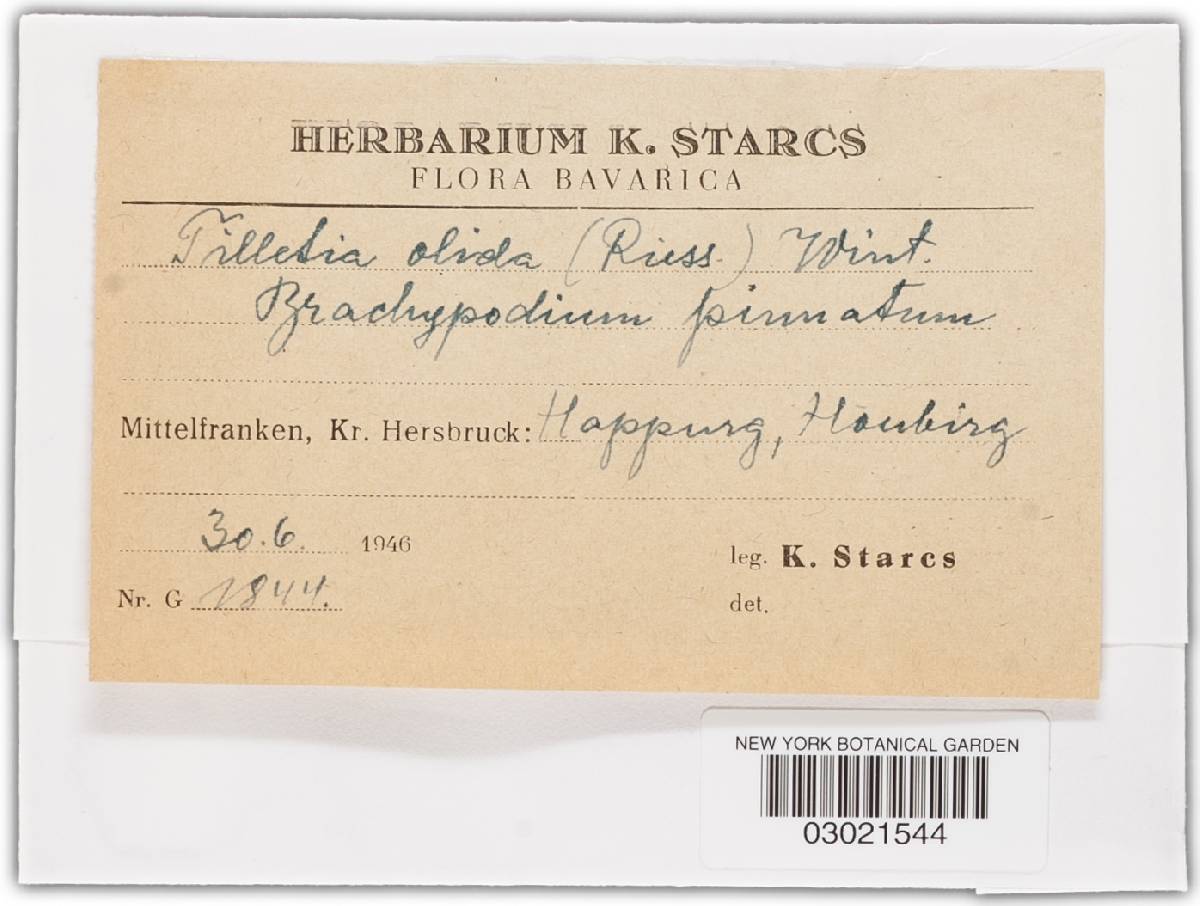 HERBARIUM K. STARCS
FLORA BAVARICA
Tilletia olida (Riess.) Wint.
Brachypodium pinnatum
Mittelfranken, Kr. Hersbruck: Happurg, Houbirg
30.6. 1946
leg. K. Starcs
Nr. G 1844.
det.
NEW YORK BOTANICAL GARDEN
03021544